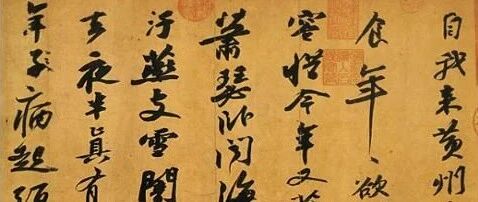 自我來黃州
食年〻欲
容惜今年又
蕭瑟臥聞海
汙燕支雪闇
去夜半真有
年子病起頭